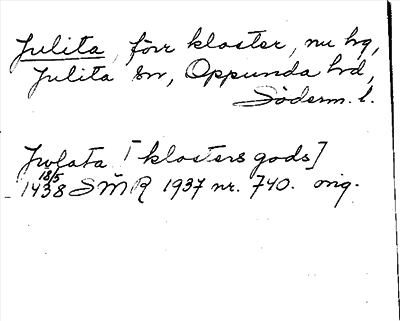 Julita, förr kloster, nu hg,
Julita sn, Oppunda hd,
Söderm. l.
Jwlata [klosters gods]
18/5
1438 SMR 1937 nr. 740. orig.